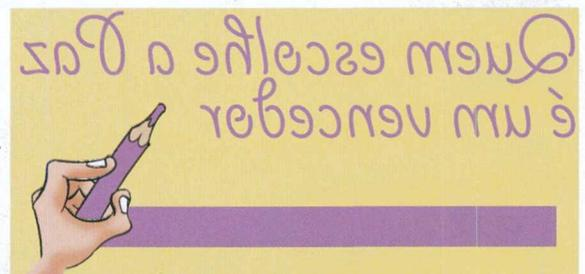 Quem escolhe a Paz
é um vencedor